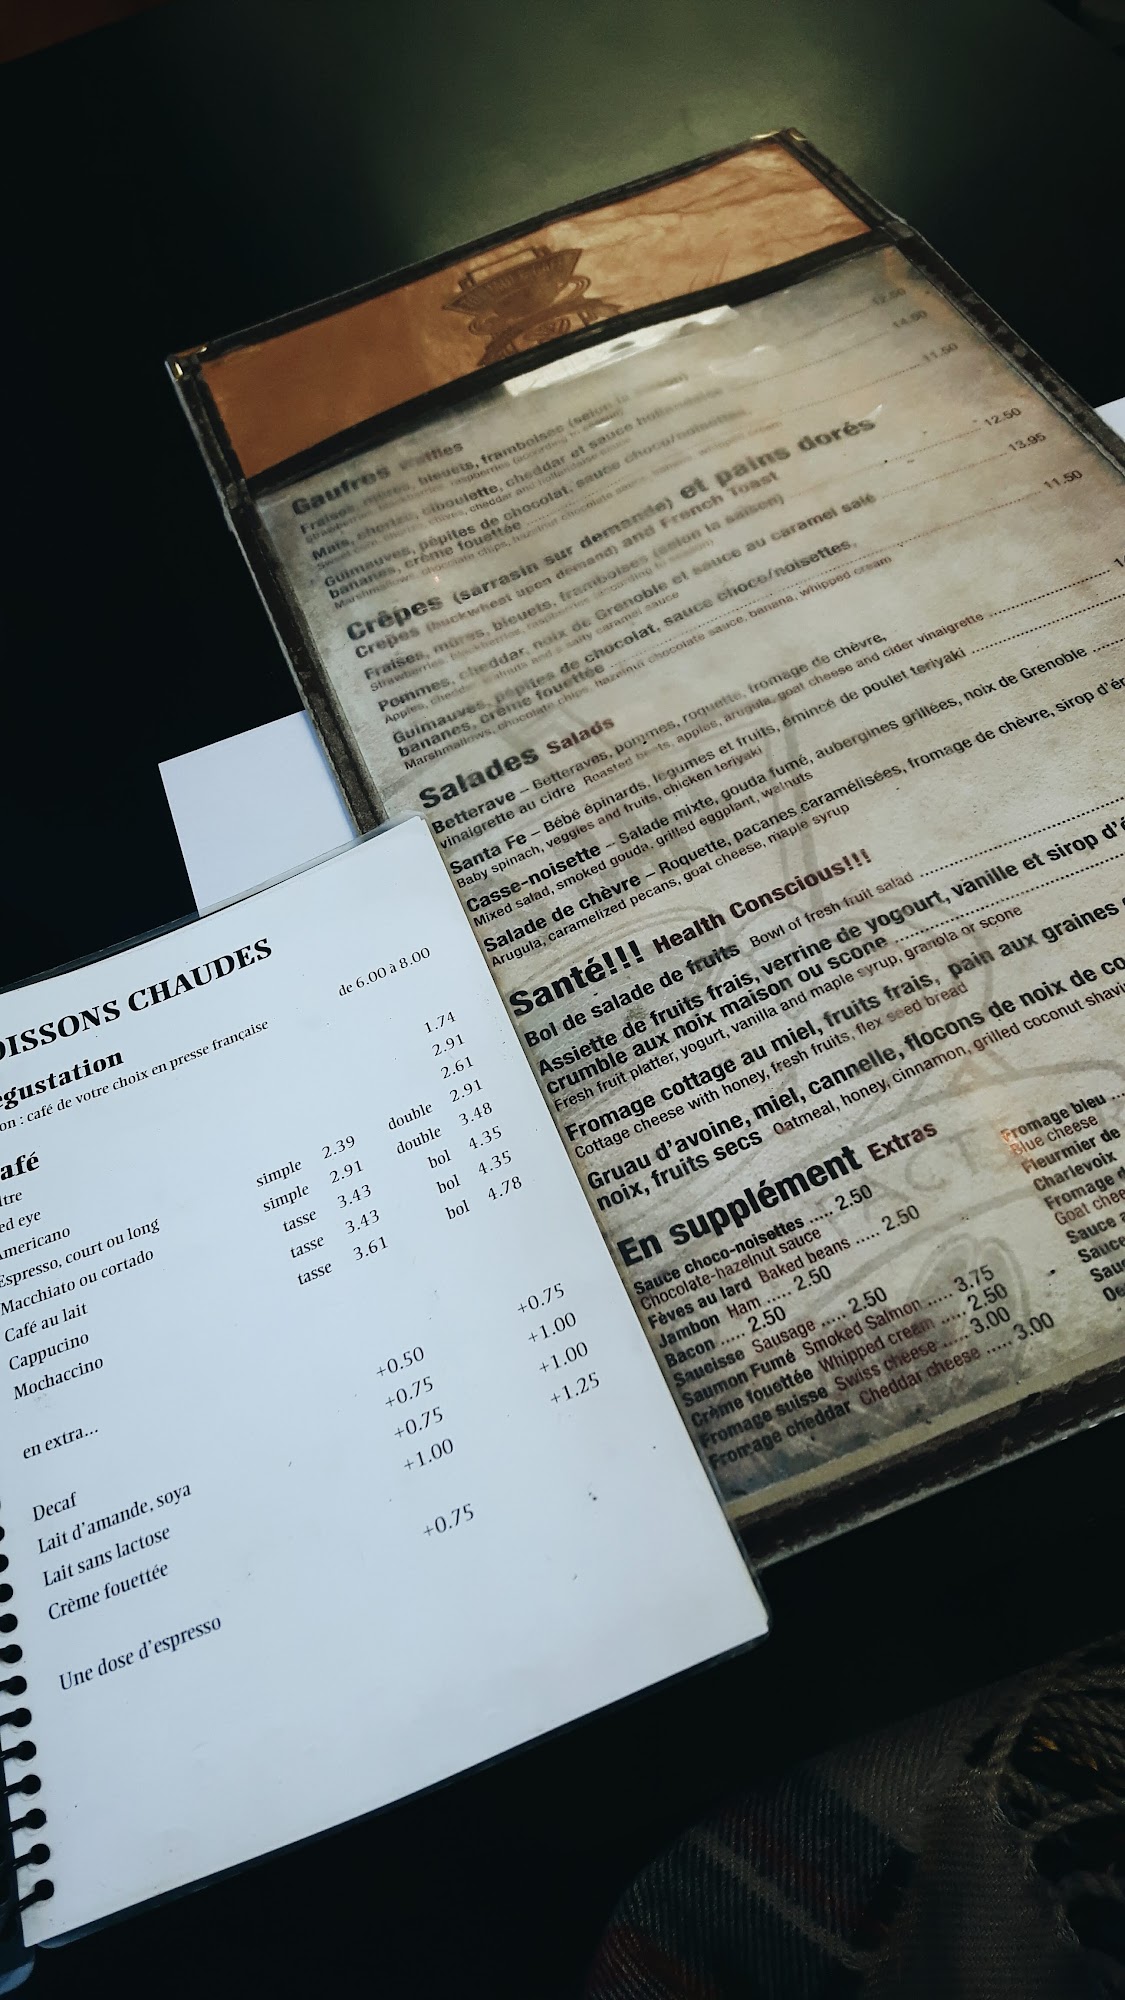 Gaufres Waffles
Fraises, mûres, bleuets, framboises (selon la saison) 12.50
Strawberries, blackberries, raspberries (according to season)
Maïs, chorizo, ciboulette, cheddar et sauce hollandaise 14.50
Sweet corn, chorizo, chives, cheddar and hollandaise sauce
Guimauves, pépites de chocolat, sauce choco/noisettes,
bananes, crème fouettée 11.50
Marshmallows, chocolate chips, hazelnut chocolate sauce, banana, whipped cream
Crêpes (sarrasin sur demande) et pains dorés
Crepes (buckwheat upon demand) and French Toast
Fraises, mûres, bleuets, framboises (selon la saison) 12.50
Strawberries, blackberries, raspberries (according to season)
Pommes, cheddar, noix de Grenoble et sauce au caramel salé 13.95
Apples, cheddar, walnuts and salty caramel sauce
Guimauves, pépites de chocolat, sauce choco/noisettes,
bananes, crème fouettée 11.50
Marshmallows, chocolate chips, hazelnut chocolate sauce, banana, whipped cream
Salades Salads
Betterave – Betteraves, pommes, roquette, fromage de chèvre,
vinaigrette au cidre Roasted beets, apples, arugula, goat cheese and cider vinaigrette
Santa Fe – Bébé épinards, légumes et fruits, émincé de poulet teriyaki
Baby spinach, veggies and fruits, chicken teriyaki
Casse-noisette – Salade mixte, gouda fumé, aubergines grillées, noix de Grenoble
Mixed salad, smoked gouda, grilled eggplant, walnuts
Salade de chèvre – Roquette, pacanes caramélisées, fromage de chèvre, sirop d'ér
Arugula, caramelized pecans, goat cheese, maple syrup
Santé!!! Health Conscious!!!
Bol de salade de fruits Bowl of fresh fruit salad
Assiette de fruits frais, verrine de yogourt, vanille et sirop d'é
Crumble aux noix maison ou scone
Fresh fruit platter, yogurt, vanilla and maple syrup, granola or scone
Fromage cottage au miel, fruits frais, pain aux graines
Cottage cheese with honey, fresh fruits, flex seed bread
Gruau d'avoine, miel, cannelle, flocons de noix de co
noix, fruits secs Oatmeal, honey, cinnamon, grilled coconut shavi
En supplément Extras
Sauce choco-noisettes ..... 2.50
Chocolate-hazelnut sauce
Fèves au lard Baked beans ..... 2.50
Jambon Ham ..... 2.50
Bacon ..... 2.50
Saucisse Sausage ..... 2.50
Saumon Fumé Smoked Salmon ..... 3.75
Crème fouettée Whipped cream ..... 2.50
Fromage suisse Swiss cheese ..... 3.00
Fromage cheddar Cheddar cheese ..... 3.00
Fromage bleu ...
Blue cheese
Fleurmier de
Charlevoix
Fromage d
Goat chee
Sauce a
Sauce
Sau
OISSONS CHAUDES
égustation
on : café de votre choix en presse française de 6.00 à 8.00
afé
ltre 1.74
ed eye 2.91
Americano 2.61
Espresso, court ou long simple 2.39 double 2.91
Macchiato ou cortado simple 2.91 double 3.48
Café au lait tasse 3.43 bol 4.35
Cappucino tasse 3.43 bol 4.35
Mochaccino tasse 3.61 bol 4.78
en extra...
Decaf +0.50 +0.75
Lait d'amande, soya +0.75 +1.00
Lait sans lactose +0.75 +1.00
Crème fouettée +1.00 +1.25
Une dose d'espresso +0.75